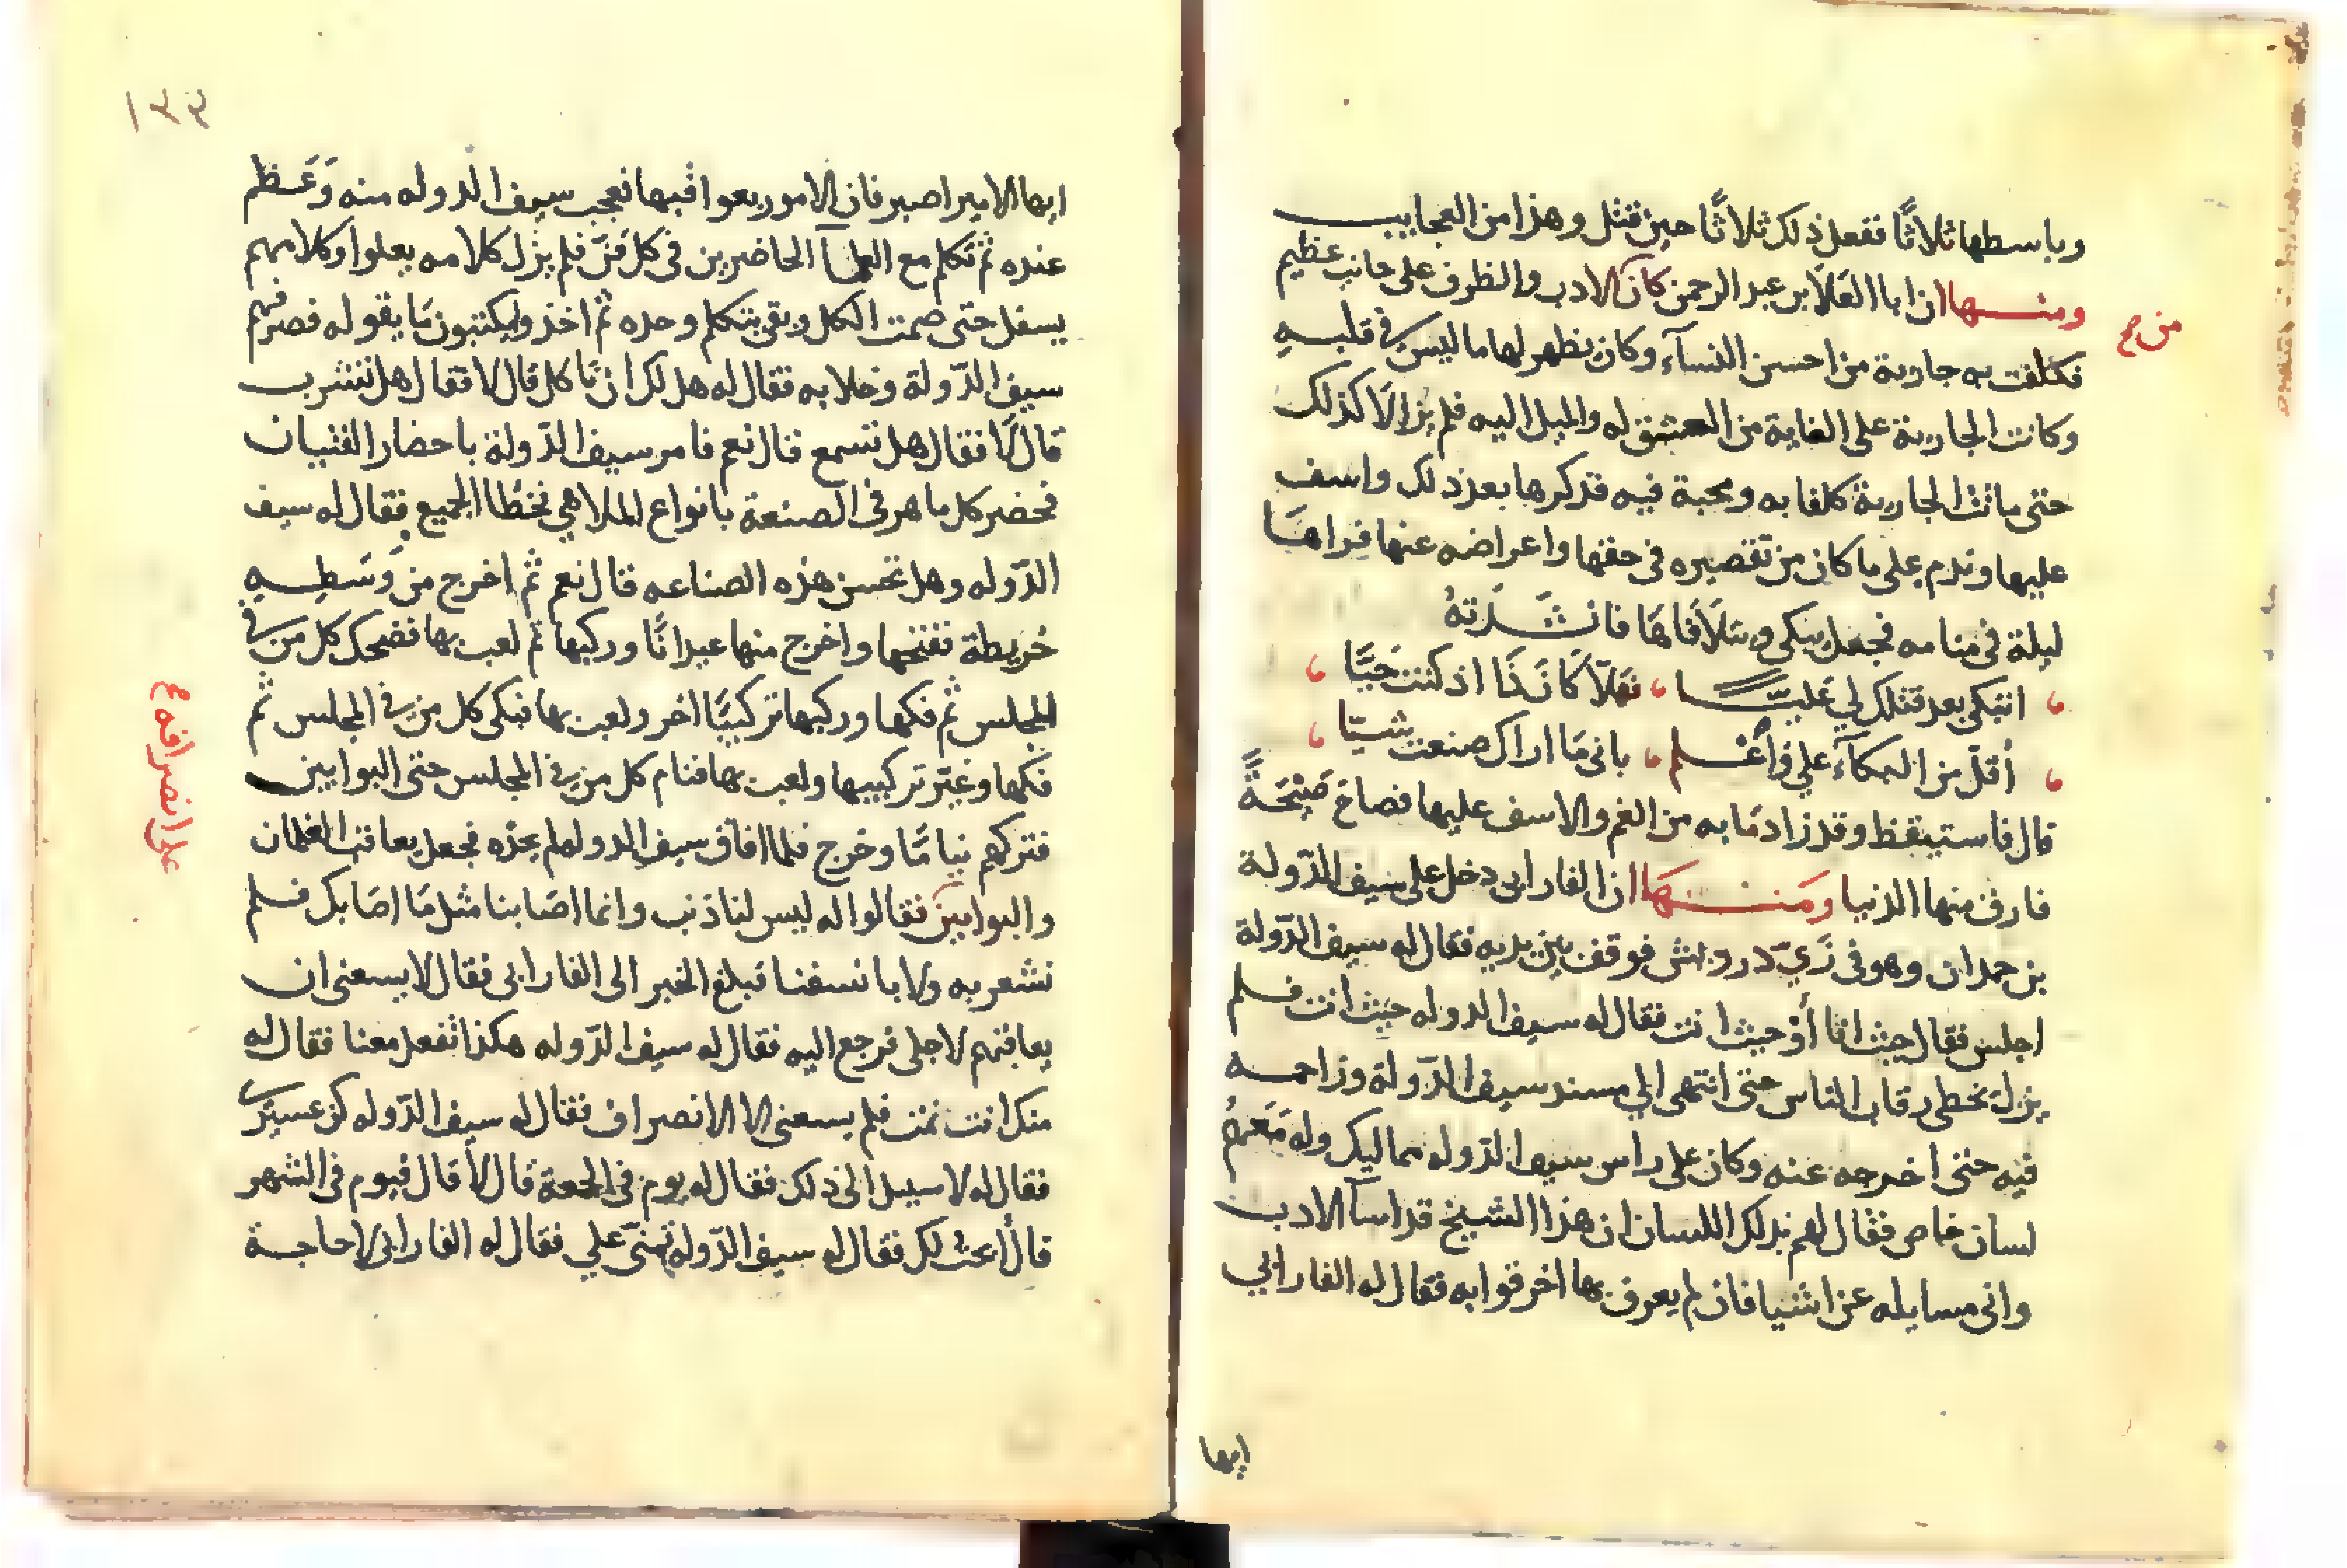 وباسطها ثلاثًا ففعل ذلك ثلاثًا حين قتل وهذا من العجايب
ومنها ان ابا العلا بن عبد الرحمن كان الادب والظرف على جانب عظيم
من صح
فكلفت به جارية من احسن النسآء وكان يظهر لها ما ليس في قلبه
وكانت الجارية على الغاية من العشق له والميل اليه فلم يزالا كذلك
حتى ماتت الجارية كلفا به ومحبة فيه فتذكرها بعد ذلك واسف
عليها وندم على ما كان من تقصيره فى حقها واعراضه عنها فراها
ليلة فى منامه فجعل يبكى ويتلافاها فانشدته
اتبكى بعد قتلك لي عليا ، فهلّا كان ذا اذ كنت حيًّا ،
أقلّ من البكآء علي واعلم ، بانى ما اراك صنعت شيّا ،
قال فاستيقظ وقد زاد ما به من الغم والاسف عليها فصاح صيحةً
فارق منها الدنيا ومنها ان الفارابى دخل على سيف الدّولة
بن حمدان وهو فى زيّ درويش فوقف بين يديه فقال له سيف الدّولة
اجلس فقال حيث انا أو حيث انت فقال له سيف الدوله حيث انت فلم
يزل تخطى رقاب الناس حتى انتهى الي مسند سيف الدّولة وزاحمه
فيه حتى اخرجه عنه وكان على راس سيف الدّوله مماليك وله معهم
لسان خاص فقال لهم بذلك اللسان ان هذا الشيخ قد اسآ الادب
وانى مسايله عن اشيا فان لم يعرف بها اخرقوا به فقال له الفارابي
ايها
١٣٣
ايها الامير اصبر فان الامور بعواقبها فعجب سيف الدوله منه وعظم
عنده ثم تكلم مع العلمآ الحاضرين فى كل فنّ فلم يزل كلامه يعلوا وكلامهم
يسفل حتى صمت الكل وبقى يتكلم وحده ثم اخذوا يكتبون ما يقوله فصرفهم
سيف الدّولة وخلا به فقال له هل لك ان تاكل قال لا فقال هل تشرب
قال لا فقال هل تسمع قال نعم فامر سيف الدّولة باحضار القيان
فحضر كل ماهر فى الصنعة بانواع الملاهي فخطا الجميع فقال له سيف
الدّوله وهل تحسن هذه الصناعه قال نعم ثم اخرج من وسطه
خريطة ففتحها واخرج منها عيدانًا وركبها ثم لعب بها فضحك كل من في
المجلس ثم فكها وركبها تركيبًا اخر ولعب بها فبكى كل من في المجلس ثم
فكها وغيّر تركيبها ولعب بها فنام كل من في المجلس حتى البوابين
فتركهم نيامًا وخرج فلما افاق سيف الدوله لم يجده فجعل يعاقب الغلمان
على انصرافه صح
والبوابين فقالوا له ليس لنا ذنب وانما اصابنا مثل ما اصابك فلم
نشعر به ولا بانسفنا فبلغ الخبر الى الفارابى فقال لا يسعنى ان
يعاقبهم لاجلى فرجع اليه فقال له سيف الدّوله هكذا تفعل معنا فقال له
منك انت نمت فلم يسعنى الا الانصراف فقال له سيف الدّوله كن عسيرى
فقال له لا سبيل الى ذلك فقال له يوم فى الجمعة قال لا قال فيوم فى الشهر
قال لك فقال له سيف الدّوله تمنّى علي فقال له الفارابى لا حاجة